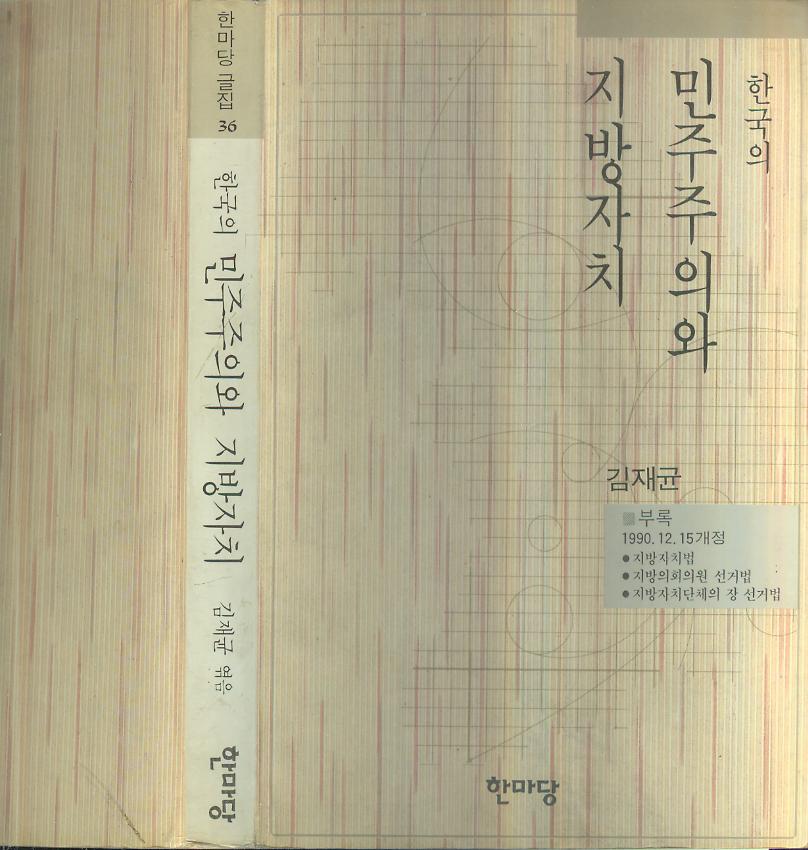 한마당 글집
36
한국의 민주주의와 지방자치
김재균 엮음
한마당
한국의
민주주의와
지방자치
김재균
부록
1990. 12. 15개정
●지방자치법
●지방의회의원 선거법
●지방자치단체의 장 선거법
한마당